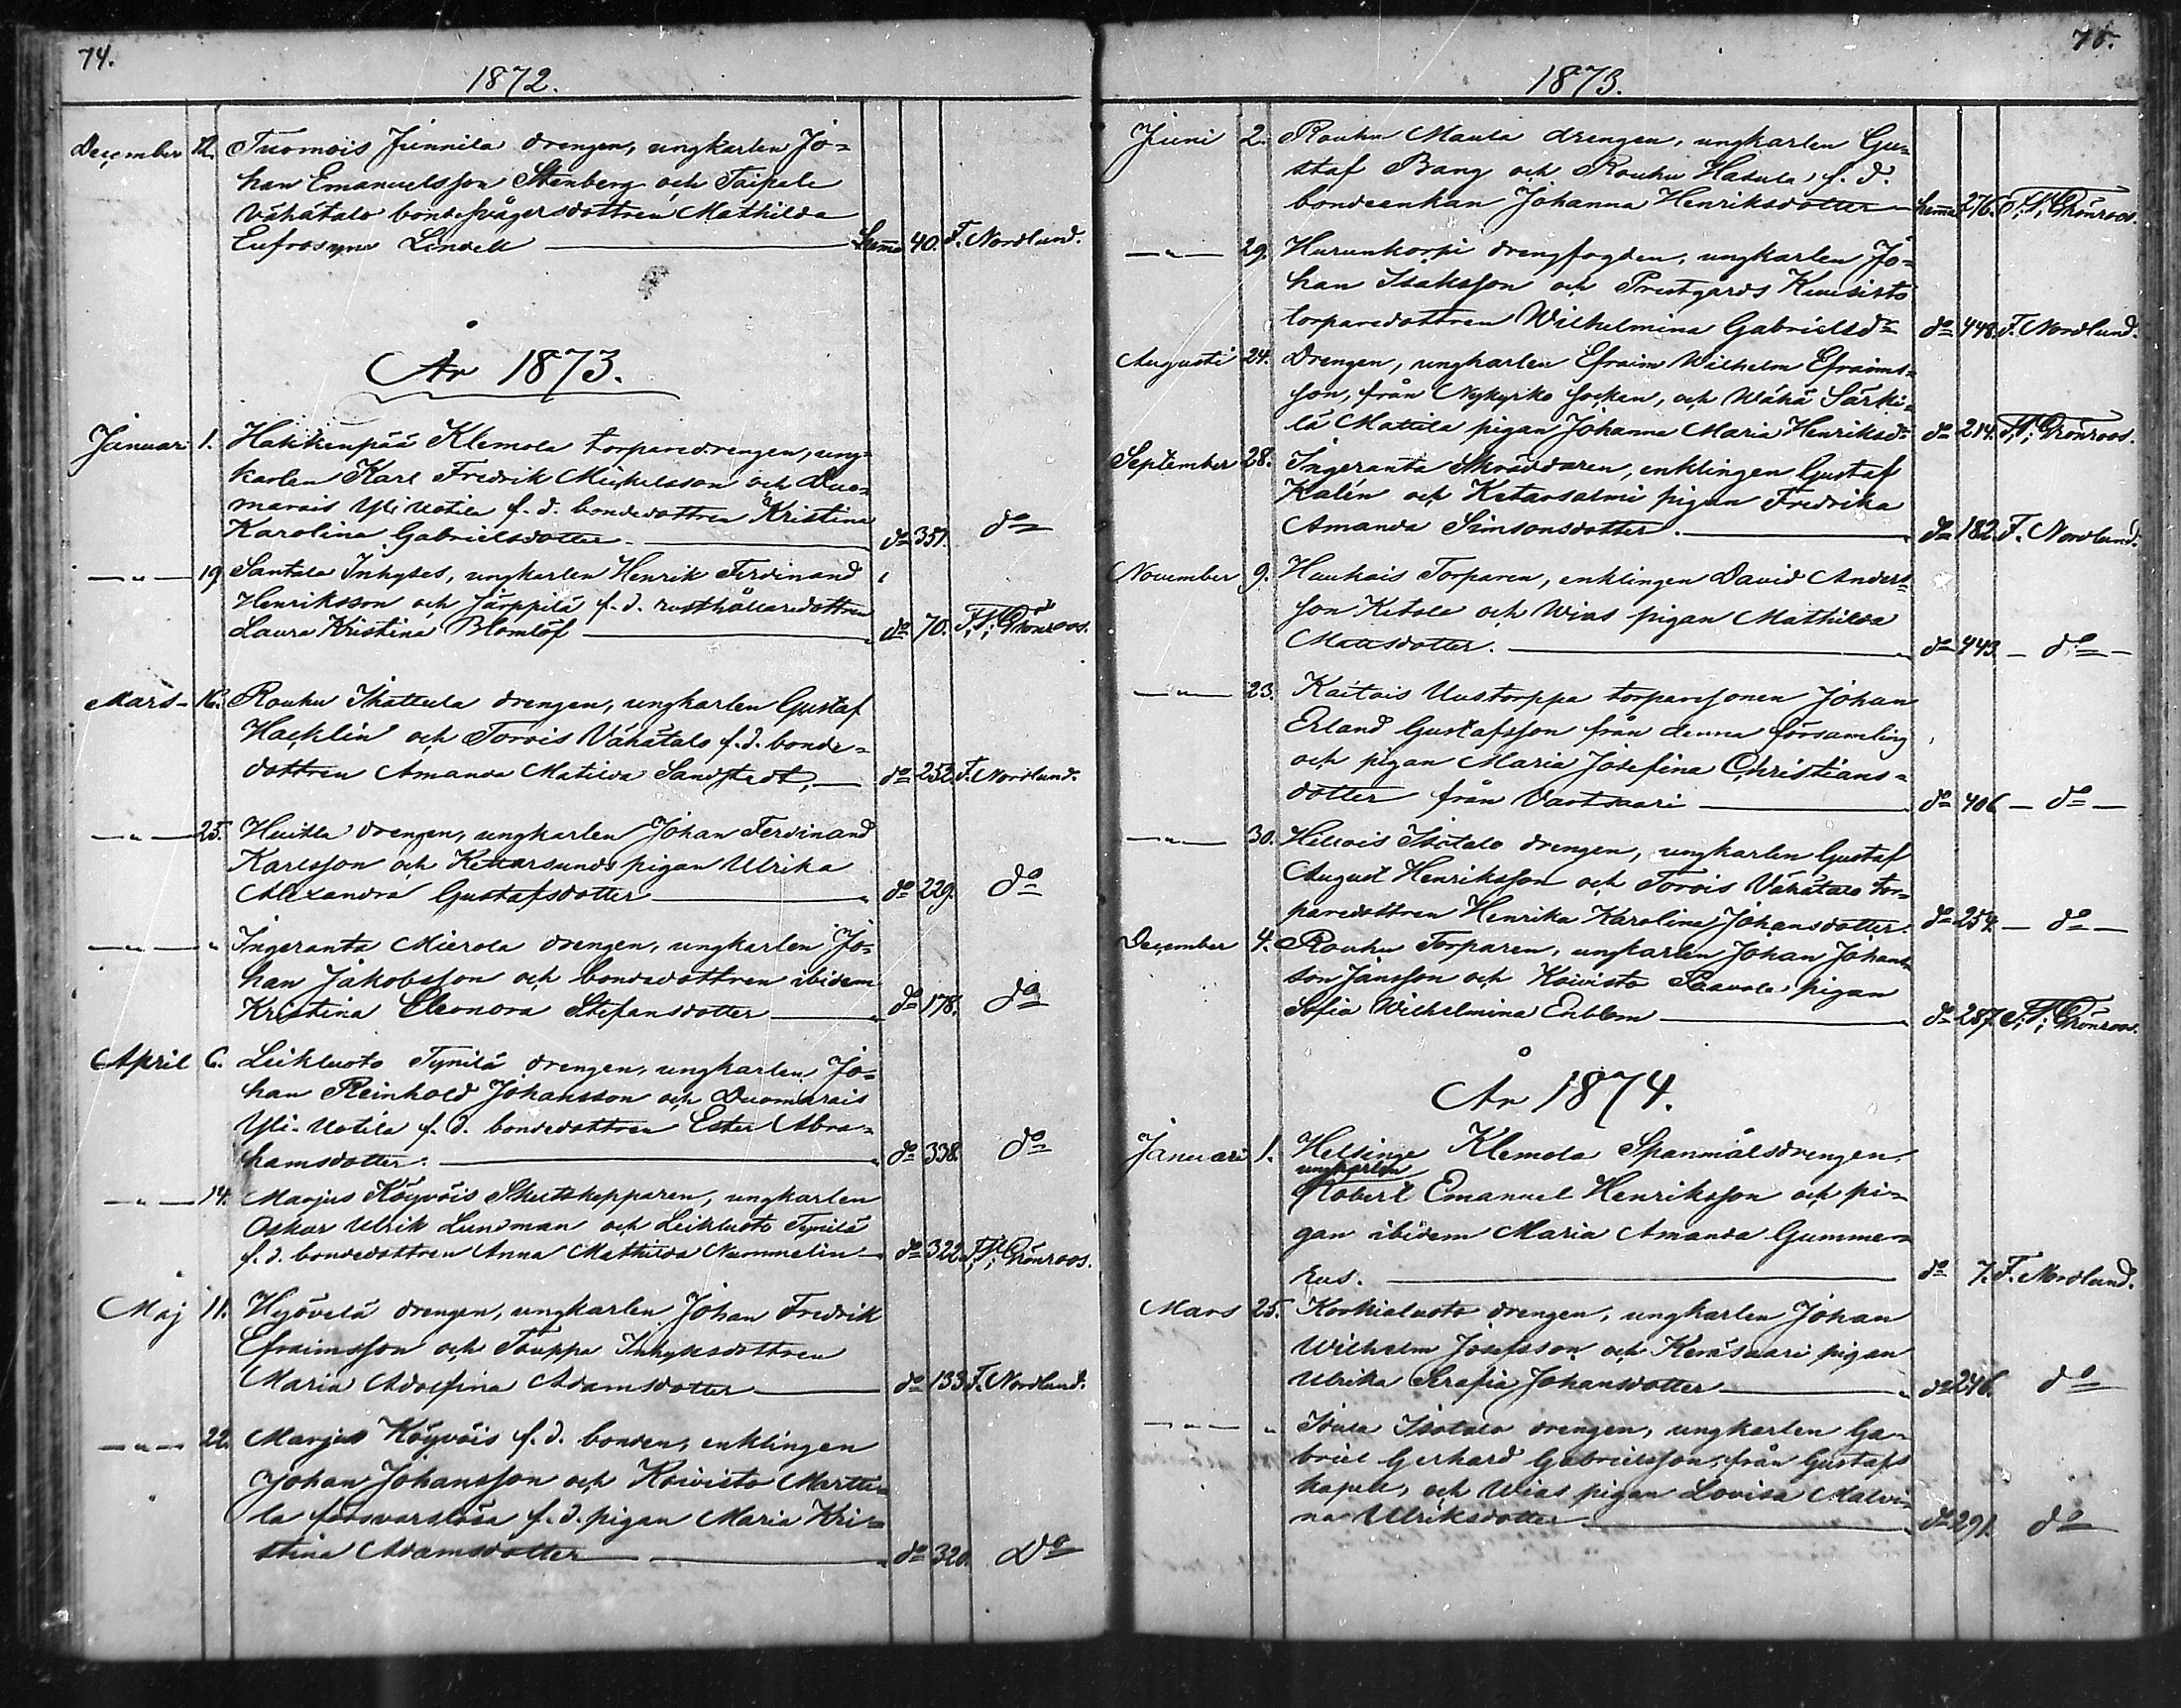 74.
1872.
December 12. Tuomois Junnila drengen, ungkarlen Jo=
han Emanuelsson Stenberg och Taipale
Vähätalo bondesvågersdottren Mathilda
Eufrosyne Lindell — hemma 40. F. Nordlund.
År 1873.
Januari 1. Hakkenpää Klemola torparedrengen, ung=
karlen Karl Fredrik Mickelsson och Duo=
marais Yli Uotila f. d. bondedottren Kristina
Karolina Gabrielsdotter — do 351. do
—„— 19 Santala Inhyses, ungkarlen Henrik Ferdinand
Henriksson och Järppilä f. d. rusthållaredottren
Laura Kristina Blomlöf — do 70. F. W. Grönroos.
Mars 16. Rouhu Skattula drengen, ungkarlen Gustaf
Hacklin och Torois Vähätalo f. d. bonde=
dottren Amanda Matilda Sandstedt, — do 252. F. Nordlund.
—„— 25. Huitla drengen, ungkarlen Johan Ferdinand
Karlsson och Kettarsunds pigan Ulrika
Alexandra Gustafsdotter — do 229. do
—„— „ Ingeranta Mierola drengen, ungkarlen Jo=
han Jakobsson och bondedottren ibidem
Kristina Eleonora Stefansdotter — do 178. do
April 6. Leikluoto Tynilä drengen, ungkarlen Jo=
han Reinhold Johansson och Duomarais
Yli-Uotila f. d. bondedottren Ester Abra=
hamsdotter. — do 338. do
—„— 14. Marjus Köyvöis Skutskepparen, ungkarlen
Oskar Ulrik Lundman och Leikluoto Tynilä
f. d. bondedottren Anna Mathilda Nummelin — do 322. F. W. Grönroos.
Maj 11. Hyövelä drengen, ungkarlen Johan Fredrik
Efraimsson och Touppa Inhysesdottren
Maria Adolfina Adamsdotter — do 133 F. Nordlund.
—„— 22. Marjus Köyvöis f. d. bonden, enklingen
Johan Johansson och Koivisto Martti=
la försvarslösa f. d. pigan Maria Kri=
stina Adamsdotter — do 320. Do
75.
1873.
Juni 2. Rouhu Maula drengen, ungkarlen Gu=
staf Bang och Rouhu Hatula, f. d.
bondeenkan Johanna Henriksdotter — hemma 276. F. W. Grönroos.
—„— 29. Hurunkorpi drengfogden, ungkarlen Jo=
han Isaksson och Prestgårds Kuusisto
torparedottren Wilhelmina Gabrielsdr do 448. F. Nordlund.
Augusti 24. Drengen, ungkarlen Efraim Wilhelm Efraims=
son, från Nykyrko socken, och Wähä Särki=
lä Mattila pigan Johanna Maria Henriksdr do 214. F. W. Grönroos.
September 28. Ingeranta Skräddaren, enklingen Gustaf
Kalén och Ketarsalmi pigan Fredrika
Amanda Simsonsdotter. — do 182. F. Nordlund.
November 9. Haukais Torparen, enklingen David Anders=
son Ketola och Wias pigan Mathilda
Mattsdotter. — do 443. — do —
—„— 23. Kaitais Uustorppa torparesonen Johan
Erland Gustafsson från denna församling
och pigan Maria Josefina Christians=
dotter från Vartsaari — do 406 — do —
—„— 30. Hillois Isotalo drengen, ungkarlen Gustaf
August Henriksson och Torois Vähätalo tor=
paredottren Henrika Karolina Johansdotter. do 254. — do —
December 4. Rouhu Torparen, ungkarlen Johan Johans=
son Jansson och Koivisto Paavola pigan
Sofia Wilhelmina Enblom — do 287. F. W. Grönroos.
År 1874.
Januari 1. Helsinge Klemola Spanmålsdrengen,
ungkarlen
Robert Emanuel Henriksson och pi=
gan ibidem Maria Amanda Gumme=
rus. — do 7. F. Nordlund.
Mars 25. Korkialuoto drengen, ungkarlen Johan
Wilhelm Josefsson och Keräsaari pigan
Ulrika Serafia Johansdotter — do 246. do
—„— „ Isotalo drengen, ungkarlen Ga=
briel Gerhard Gabrielsson, från Gustafs
kapell, och Wias pigan Lovisa Malvi=
na Ulriksdotter — do 291. do